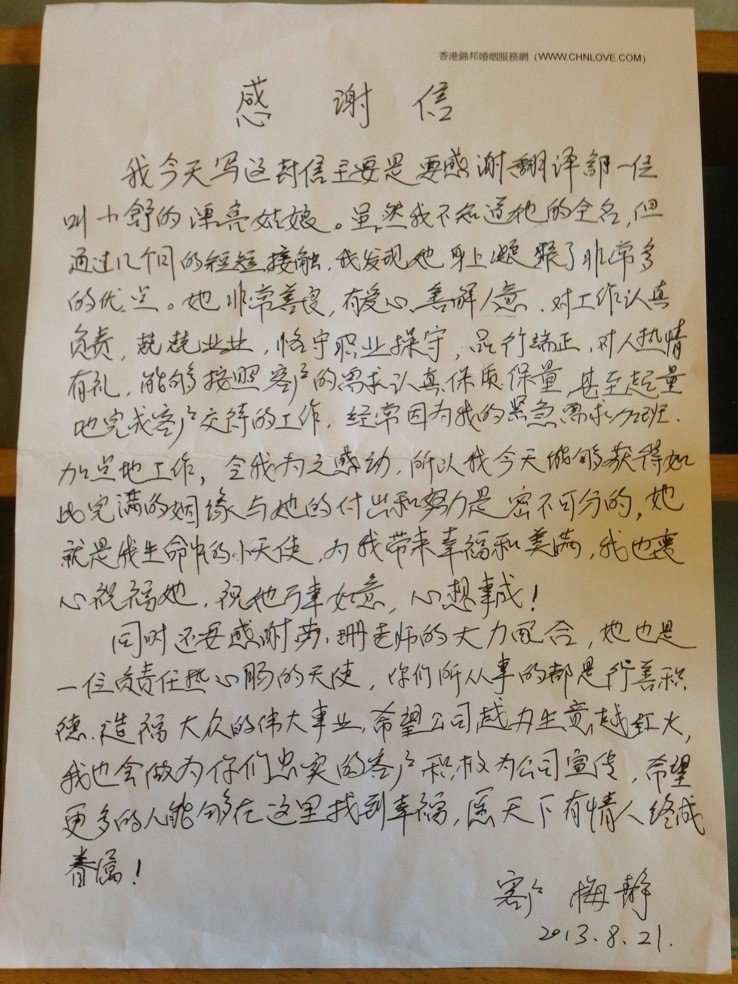 香港錦邦婚姻服務網（WWW.CHNLOVE.COM）
感 谢 信
我今天写这封信主要是要感谢翻译部一位
叫小舒的漂亮姑娘。虽然我不知道她的全名,但
通过几个月的短短接触,我发现她身上凝聚了非常多
的优点。她非常善良,有爱心,善解人意,对工作认真
负责,兢兢业业,恪守职业操守,品行端正,对人热情
有礼,能够按照客户的需求认真保质保量甚至超量
地完成客户交待的工作,经常因为我的紧急需求加班.
加点地工作,令我为之感动,所以我今天能够获得如
此完满的姻缘与她的付出和努力是密不可分的,她
就是我生命中的小天使,为我带来幸福和美满,我也衷
心祝福她,祝她万事如意,心想事成!
同时还要感谢 珊老师的大力配合,她也是
一位负责任热心肠的天使,你们所从事的都是行善积
德、造福大众的伟大事业,希望公司越办生意越红火,
我也会做为你们忠实的客户积极为公司宣传,希望
更多的人能够在这里找到幸福,愿天下有情人终成
眷属!
客户 梅静
2013.8.21.